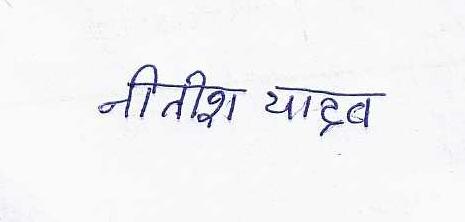 नीतीश यादव